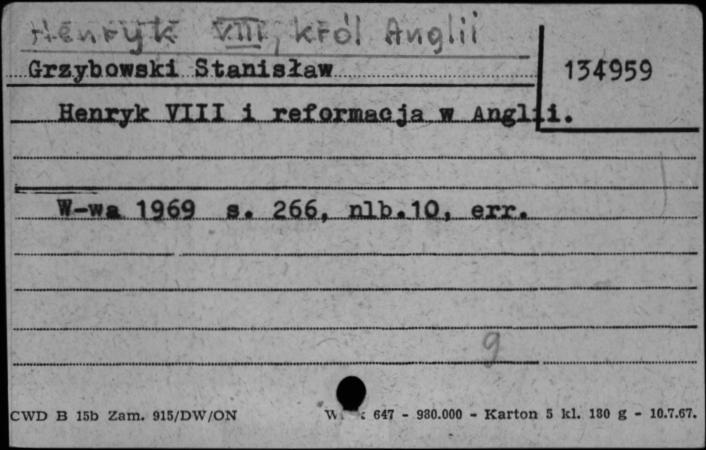 Henryk VIII, król Anglii
Grzybowski Stanisław
134959
Henryk VIII i reformacja w Anglii.
W-wa 1969 s. 266, nlb.10, err.
9
CWD B 15b Zam. 915/DW/ON
647 - 980.000 - Karton 5 kl. 180 g - 10.7.67.